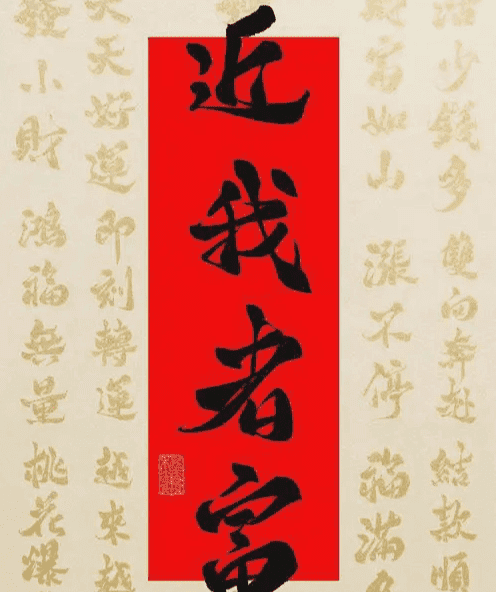 活少錢多 雙向奔赴 結款順
財富如山 漲不停 福滿
近我者富
天天好運 即刻轉運 越來越
發小財 鴻福無量 桃花爆